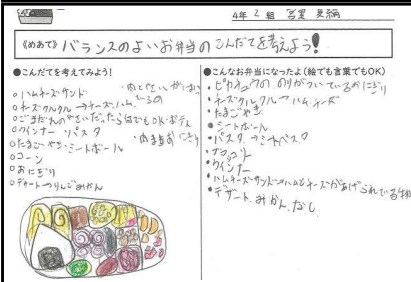 4年 2組
《めあて》バランスのよいお弁当のこんだてを考えよう!
●こんだてを考えてみよう!
○ハムチーズサンド
○チーズクルクル→チーズ、ハム、
○ウインナー・パスタ
○たまごやき・ミートボール
○コーン
○おにぎり
○デザート→りんご、みかん
●こんなお弁当になったよ(絵でも言葉でもOK)
・ピカチュウののりがついているおにぎり
・チーズクルクル→ハム、チーズ
・たまごやき
・ミートボール
・パスタ→ミートパスタ
・ブロッコリー
・ウインナー
・ハムチーズサンド→ハムとチーズがあげられている物
・デザート、みかん、なし